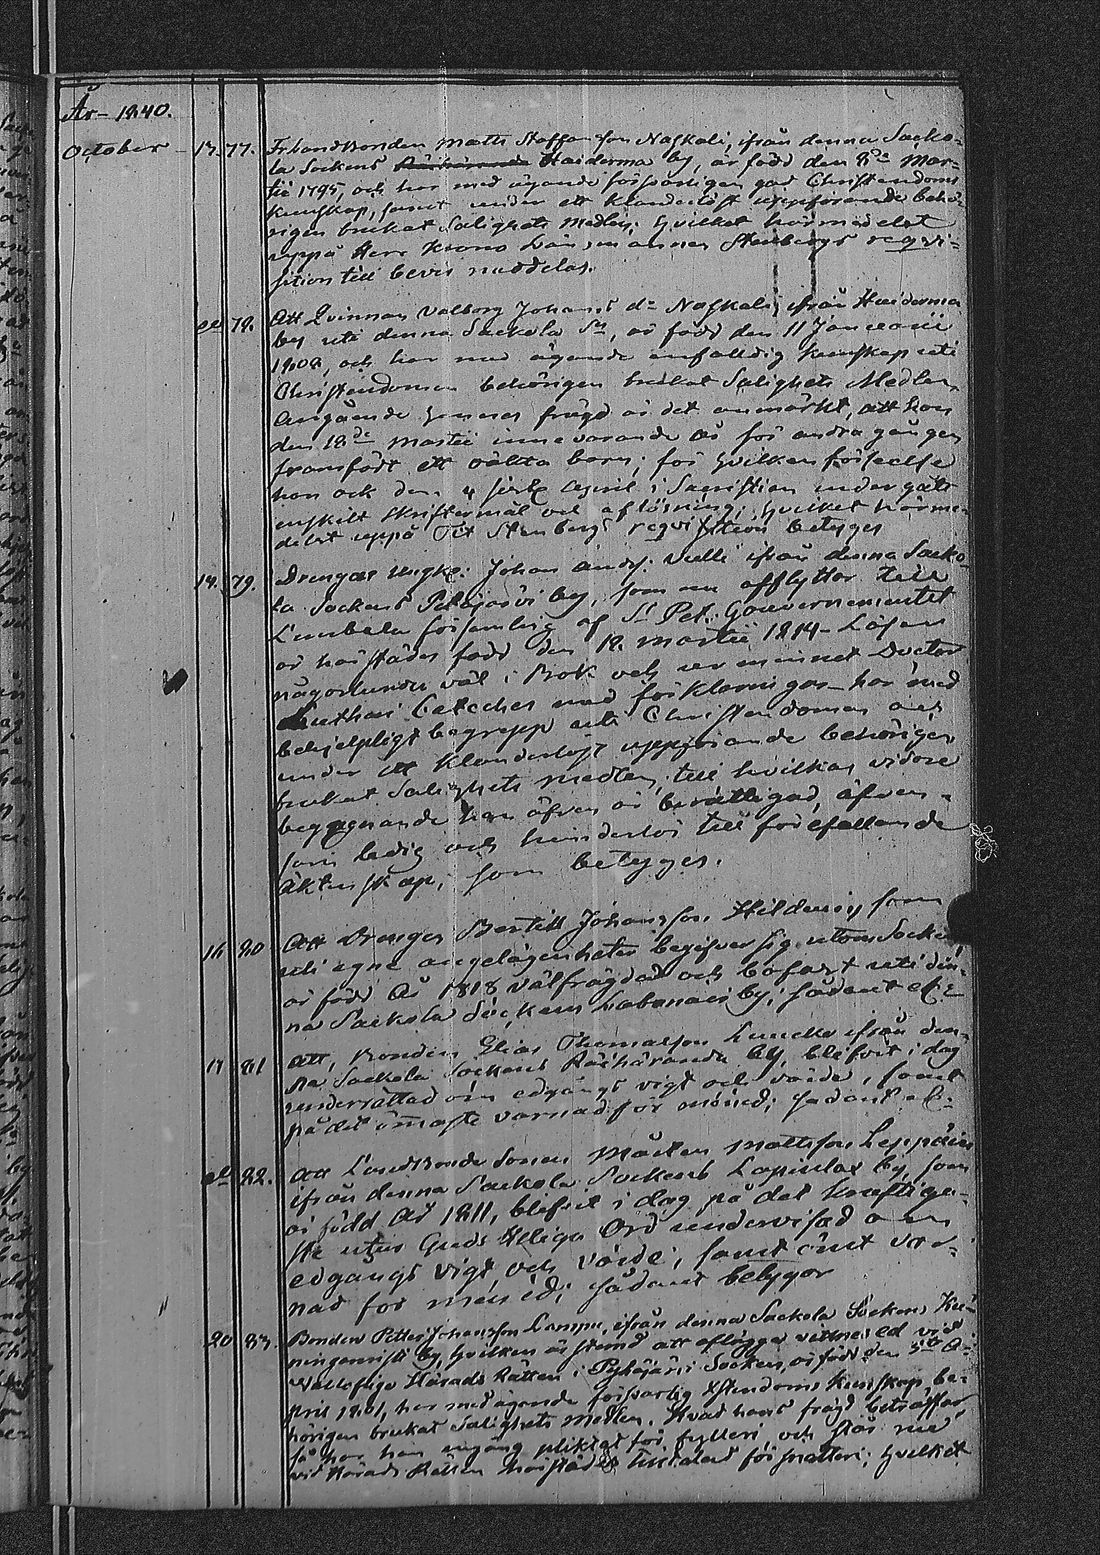 År 1840.
October 13. 77. Frbondbonden Matts Staffansson Naskali, ifrån denna Sacko-
la Sockens Haiderma by, är född den 8de Mar-
tii 1795, och har med ägande försvarligen god Christendoms
kunskap, samt under ett klanderlöst uppförande behö-
rigen brukat Salighets Medlen; hvilket härmedelst
uppå Herr Krono Länsmannen Stenbergs reqvi-
sition till bevis meddelas.
78. Att Qvinnan Valborg Johans dr Naskali, ifrån Haiderma
by uti denna Sackola Sn, är född den 11 Januarii
1808, och har med ägande enfalldig kunskap uti
Christendomen behörigen brukat Salighets Medlen.
Angående hennes frägd är det anmärkt, att hon
den 18de Martii innevarande År för andra gången
framfödt ett oäkta barn; för hvilken förseelse
hon ock den April i Sacristian undergått
enskilt Skriftermål och aflösning; hvilket härme-
delst uppå Tit Stenbergs reqvisition betyges
14. 79. Drengen Ynglc: Johan Andrs. Vulli ifrån denna Sacko-
la Sockens Petäjärvi by, som nu afflyttar till
Lembala församling af St Pet. Gouvernementet
är härstädes född den 12. Martii 1814 – Läser
någorlunda väl i Bok och ur minnet Doctor
Lutheri Cateches med förklaringar – har med
behjelpligt begrepp uti Christendomen och
under ett klanderlöst uppförande behörigen
brukat Salighets medlen, till hvilkas vidare
begagnande han äfven är berättigad, äfven-
som ledig och hinderlös till förefallande
äktenskap; som betyges.
16 80 Att Drengen Bertill Johansson Hildeni, som
uti egne angelägenheter begifver sig utom Socken,
är född År 1818 välfrägdad och bofast uti den-
na Sackola Sockens by; sådant
17 81 Att, Bonden Elias Thomasson Lunckka ifrån den-
na Sackola Sockens Räihäranda by, blifvit i dag
underrättad om edgångs vigt och värde, samt
på det ömmaste varnad för mened; sådant
82. Att Landbonde Sonen Mårten Mattsson Leppäin
ifrån denna Sackola Sockens Lapinlax by, som
är född År 1811, blifvit i dag på det kraftiga-
ste utur Guds Heliga Ord undervisad om
edgångs vigt och värde; samt ömt var-
nad för mened; sådant betygar
20 83. Bonden Petter Johansson Lamppu, ifrån denna Sackola Socken,
by, hvilken är stemd att aflägga vittnes ed vid
Vällofliga Härads Rätten i Pyhäjärvi Socken, är född den 5te A-
pril 1801, har med ägande försvarlig Xstendoms Kunskap, be-
hörigen brukat Salighets Medlen. Hvad hans frägd beträffar
så har han engång pliktat för fylleri och står nu
vid Härads Rätten härstädes tilltalad för snatteri; hvilket